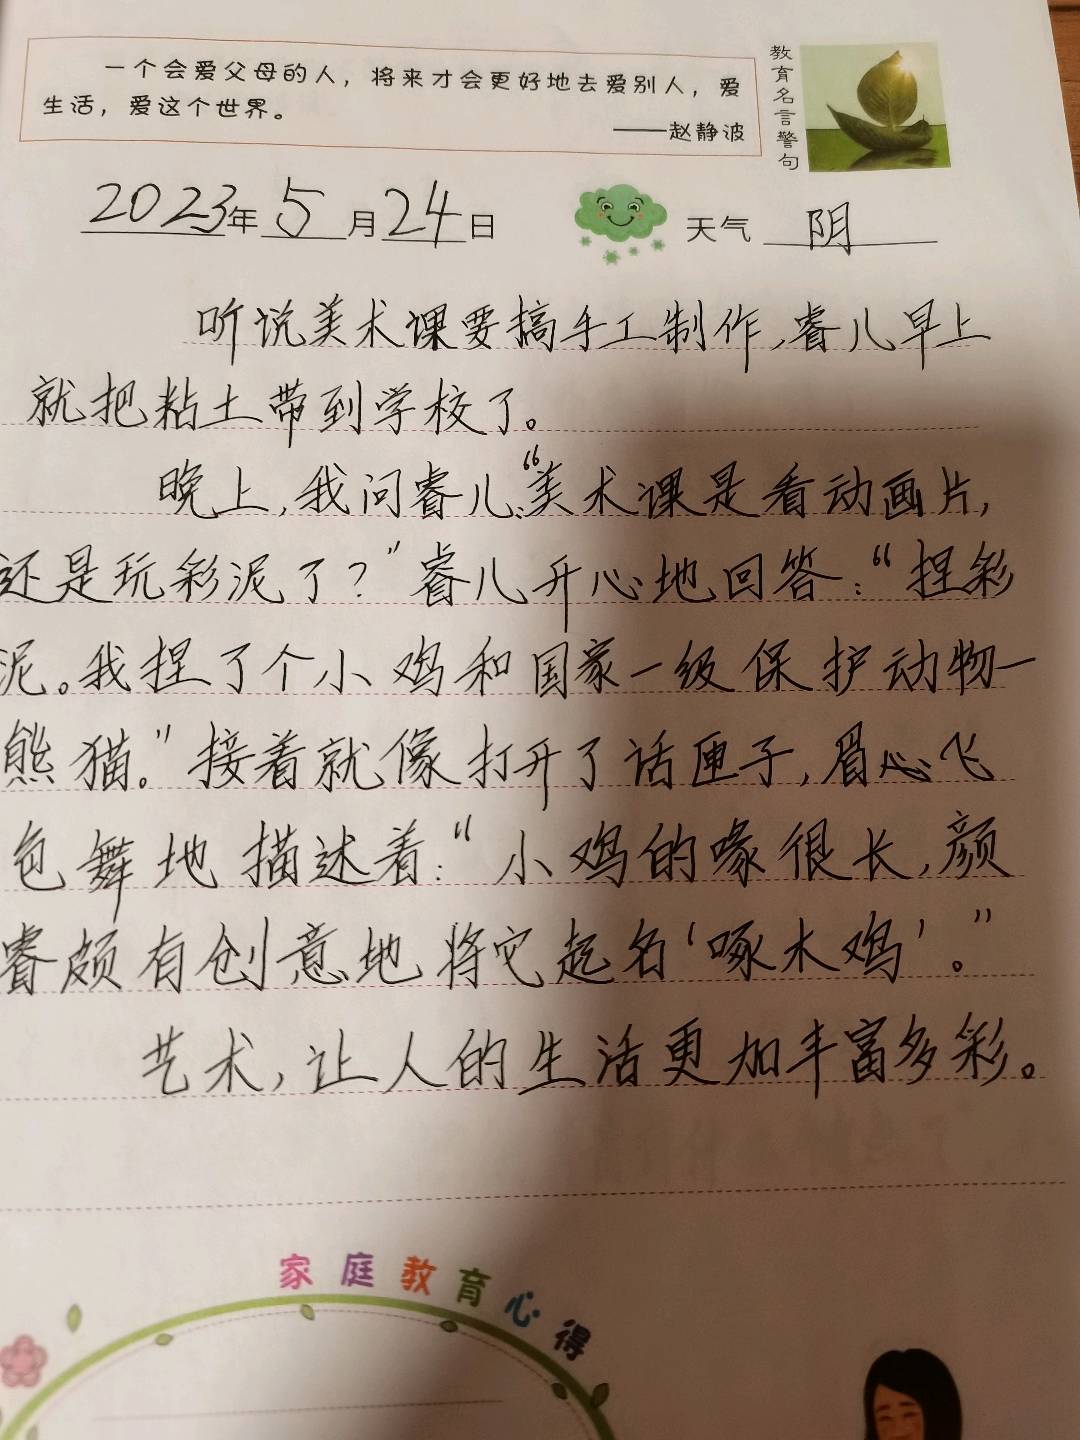 一个会爱父母的人，将来才会更好地去爱别人，爱
生活，爱这个世界。
——赵静波
教育名言警句
2023年5月24日 天气 阴
听说美术课要搞手工制作，睿儿早上
就把粘土带到学校了。
晚上，我问睿儿：“美术课是看动画片，
还是玩彩泥了？”睿儿开心地回答：“捏彩
泥。我捏了个小鸡和国家一级保护动物—
熊猫。”接着就像打开了话匣子，眉飞
色舞地描述着：“小鸡的喙很长，颜
睿颇有创意地将它起名‘啄木鸡’。”
艺术，让人的生活更加丰富多彩。
家庭教育心得